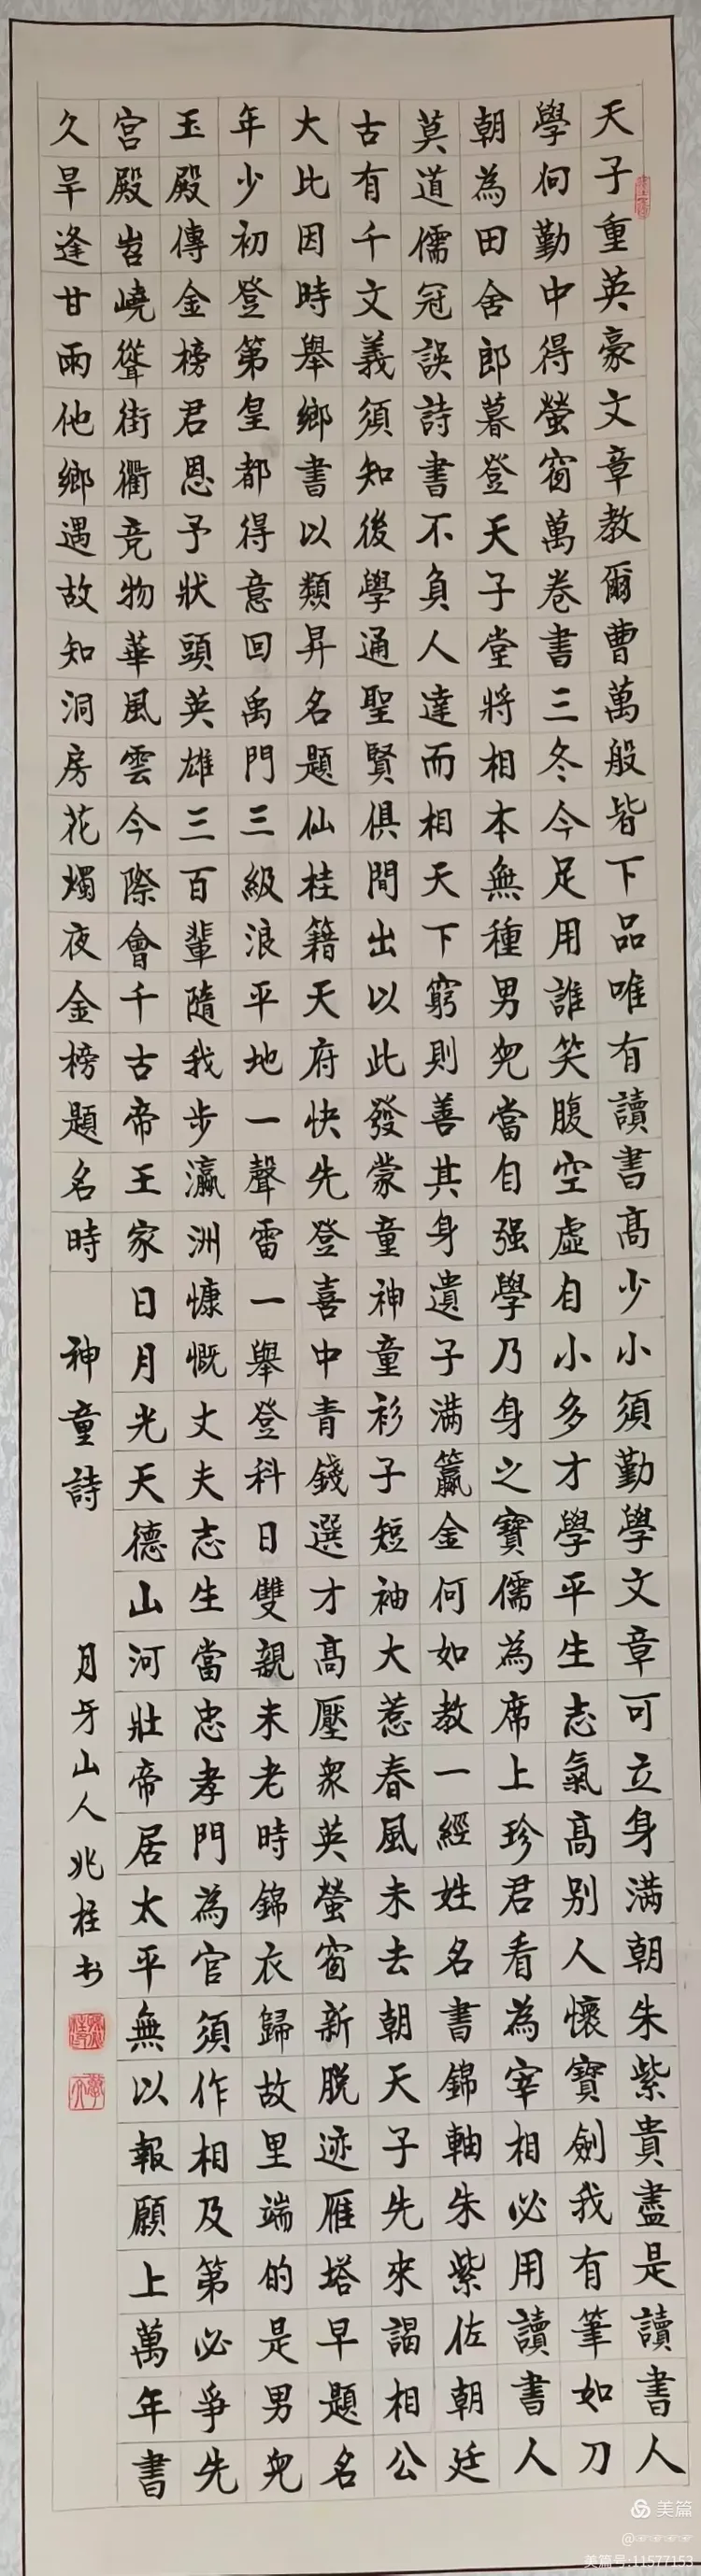 天子重英豪文章教爾曹萬般皆下品唯有讀書高少小須勤學文章可立身满朝朱紫貴盡是讀書人
學向勤中得螢窗萬卷書三冬今足用誰笑腹空虛自小多才學平生志氣高別人懷寶劍我有筆如刀
朝為田舍郎暮登天子堂將相本無種男兒當自强學乃身之寶儒為席上珍君看為宰相必用讀書人
莫道儒冠誤詩書不負人達而相天下窮則善其身遺子满籯金何如教一經姓名書錦軸朱紫佐朝廷
古有千文義須知後學通聖賢俱間出以此發蒙童神童衫子短袖大惹春風未去朝天子先來謁相公
大比因時舉鄉書以類昇名題仙桂籍天府快先登喜中青錢選才高壓衆英螢窗新脱迹雁塔早題名
年少初登第皇都得意回禹門三級浪平地一聲雷一舉登科日雙親未老時錦衣歸故里端的是男兒
玉殿傳金榜君恩予狀頭英雄三百輩隨我步瀛洲慷慨丈夫志生當忠孝門為官須作相及第必爭先
宮殿岧嶢聳街衢竞物華風雲今際會千古帝王家日月光天德山河壯帝居太平無以報願上萬年書
久旱逢甘雨他鄉遇故知洞房花燭夜金榜題名時 神童詩 月牙山人兆桂书
美篇
美篇号:11577153